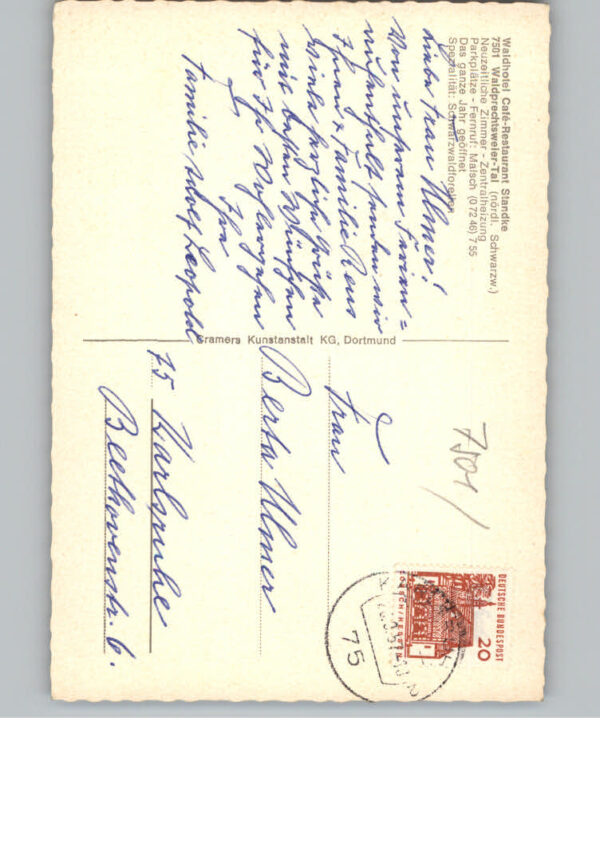 Waldhotel Café-Restaurant Standke
7501 Waldprechtsweier-Tal (nördl. Schwarzw.)
Neuzeitliche Zimmer - Zentralheizung
Parkplätze - Fernruf: Malsch (0 72 46) 7 55
Das ganze Jahr geöffnet
Spezialität: Schwarzwaldforellen
Liebe Frau Ulmer!
Von unserem Ferien=
aufenthalt senden wir
Ihnen + Familie
viele herzliche Grüße
mit besten Wünschen
für Ihr Wohlergehen
Ihre
Familie Adolf Leopold
Cramers Kunstanstalt KG, Dortmund
7501/
DEUTSCHE BUNDESPOST
20
LORSCH/HESSEN
75
Frau
Berta Ulmer
75 Karlsruhe
Beethovenstr. 6.